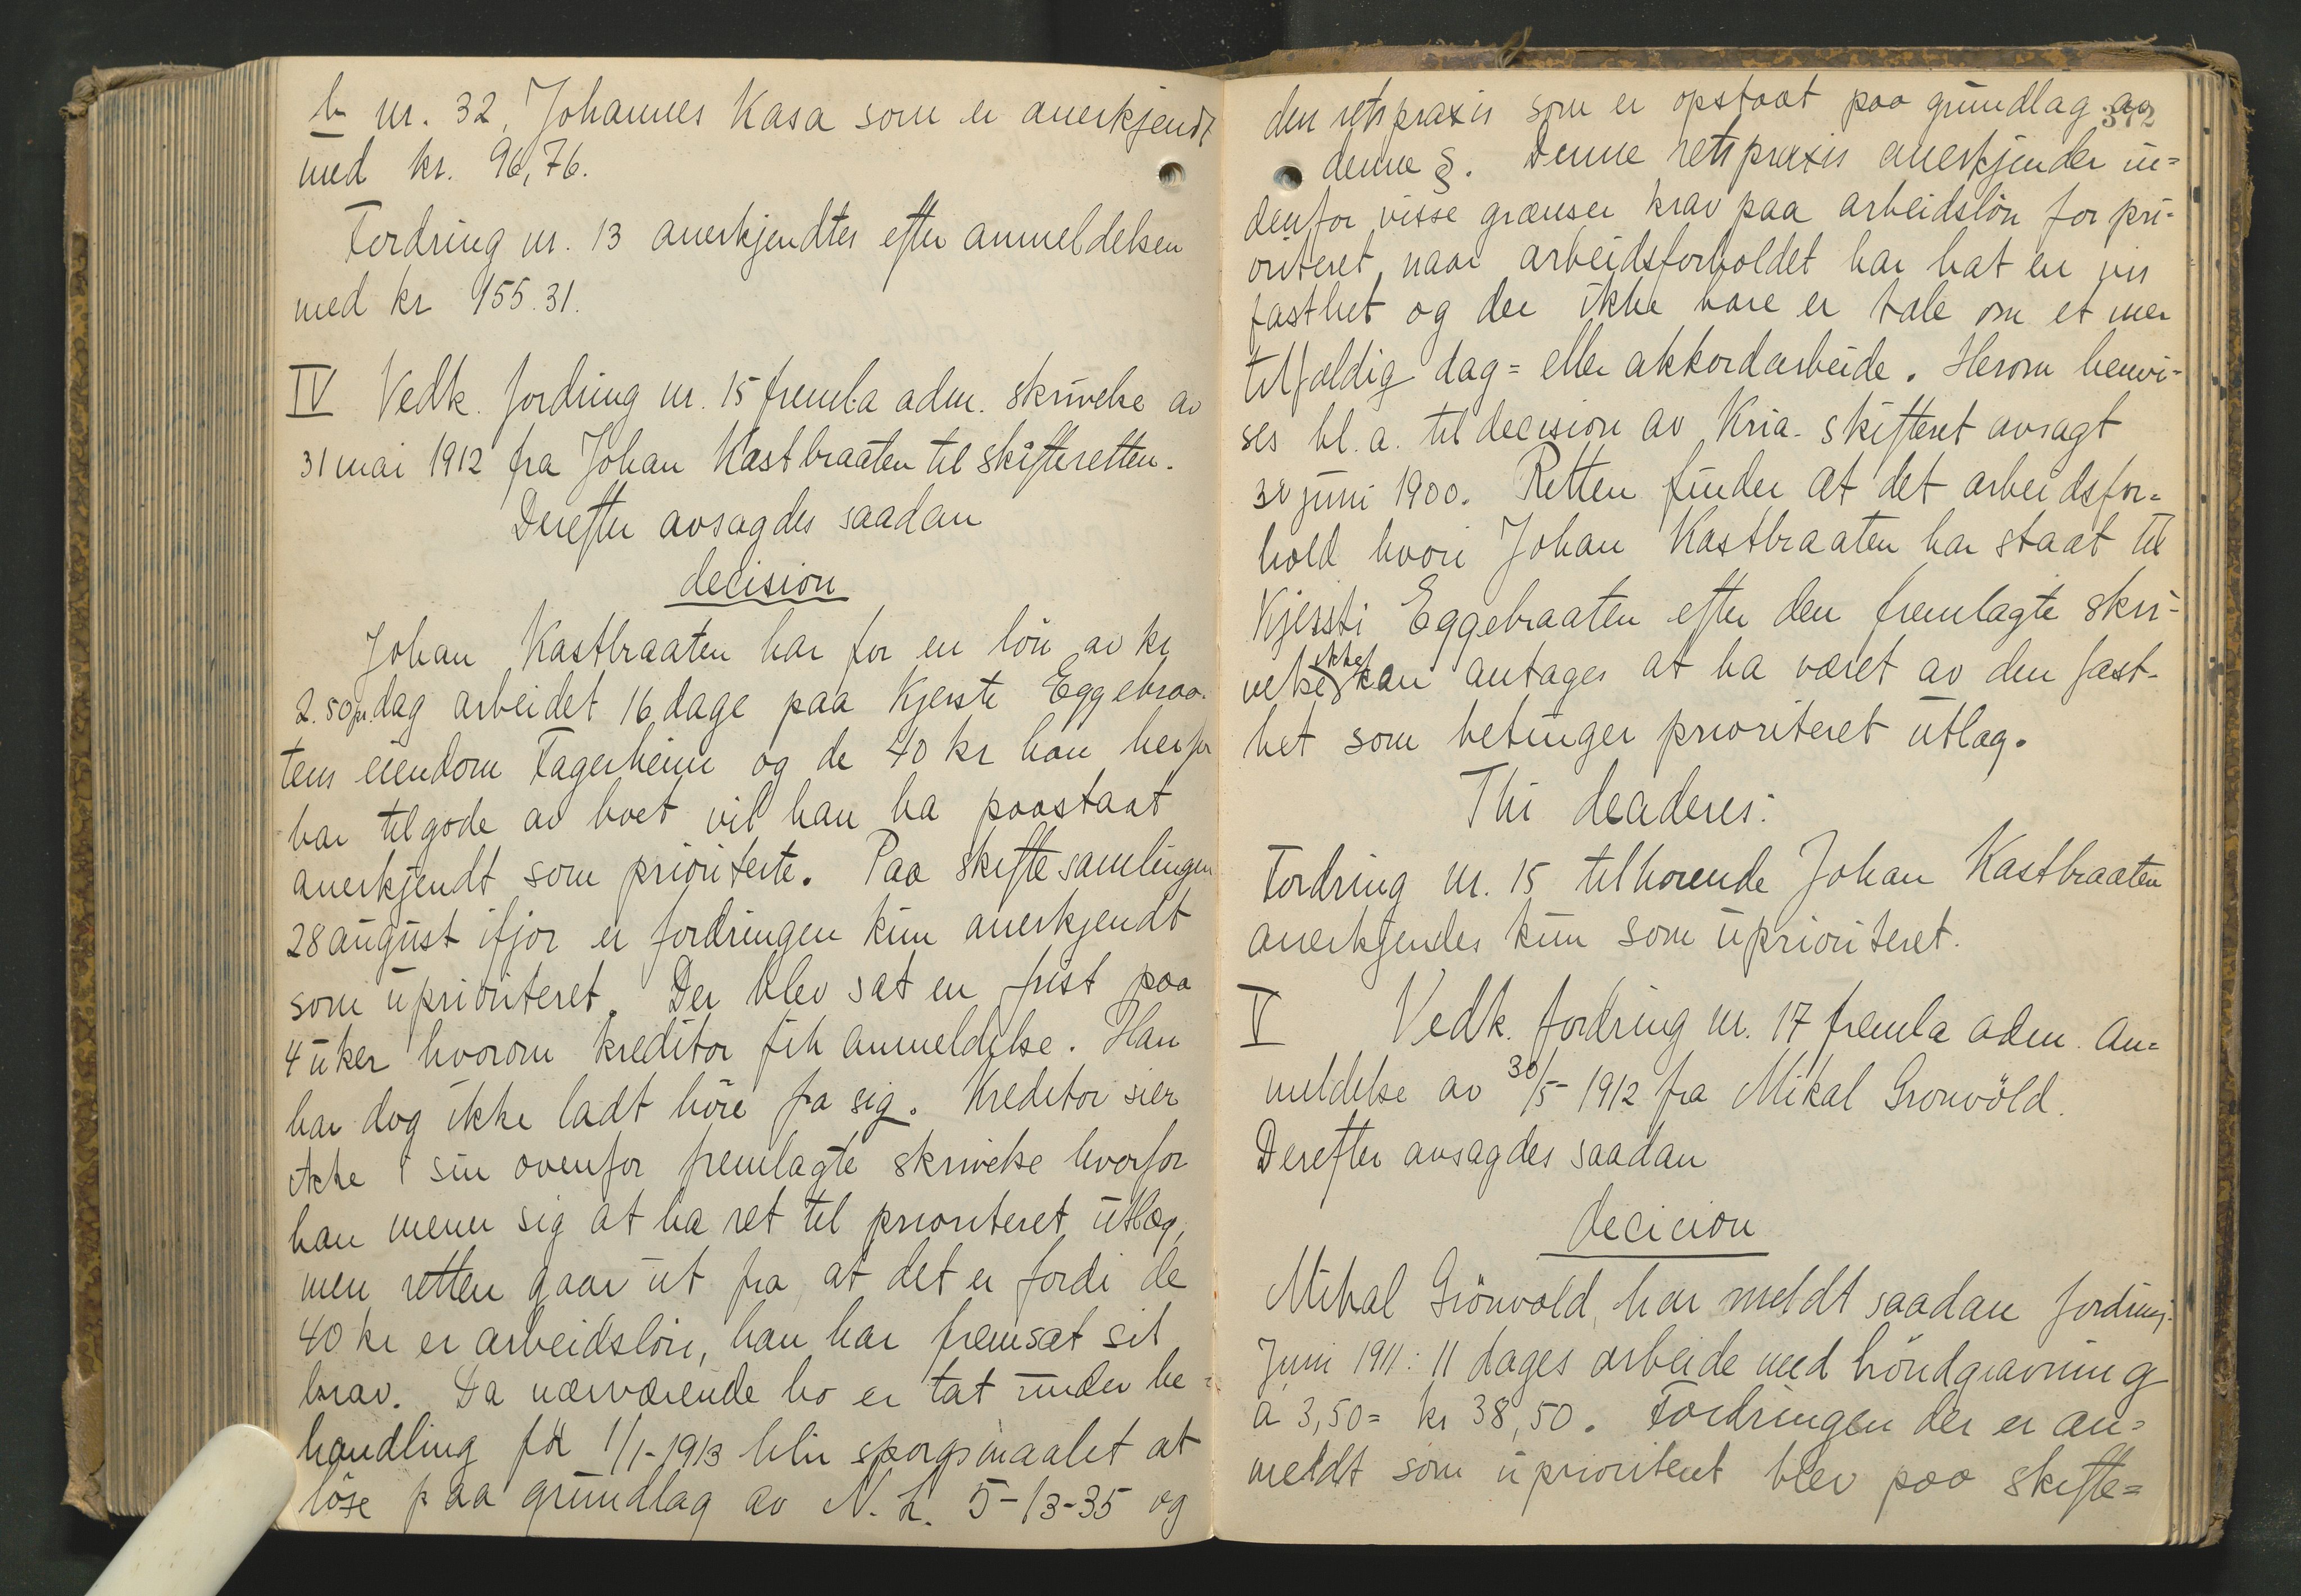 b nr. 32, Johannes Kasa som er anerkjendt
med kr. 96,76.
Fordring nr. 13 anerkjendtes efter anmeldelsen
med kr 155.31.
IV Vedk. fordring nr. 15 fremla adm. skrivelse av
31 mai 1912 fra Johan Kastbraaten til skifteretten.
Derefter avsagdes saadan
decision
Johan Kastbraaten har for en løn av kr
2.50 pr. dag arbeidet 16 dage paa Kjersti Eggebraa-
tens eiendom Fagerheim og de 40 kr han herfor
har tilgode av boet vil han ha paastaat
anerkjendt som prioriterte. Paa skiftesamlingen
28 august ifjor er fordringen kun anerkjendt
som uprioriteret. Der blev sat en frist paa
4 uker hvorom kreditor fik anmeldelse. Han
har dog ikke ladt höre fra sig. Kreditor sier
ikke i sin ovenfor fremlagte skrivelse hvorfor
han mener sig at ha ret til prioriteret utlæg,
men retten gaar ut fra at det er fordi de
40 kr er arbeidslön, han har fremsat sit
krav. Da nærværende bo er tat under be=
handling för 1/1-1913 blir spørgsmaalet at
löse paa grundlag av N. L. 5-13-35 og
372
den retspraxis som er opstaat paa grundlag av
denne §. Denne retspraxis anerkjender in=
denfor visse grænser krav paa arbeidslön for pri-
oriteret, naar arbeidsforholdet har hat en vis
fasthet og der ikke bare er tale om et mer
tilfældig dag= eller akkordarbeide. Herom henvi-
ses bl. a. til decision av Kria. skifteret avsagt
juni 1900. Retten finder at det arbeidsfor=
hold hvori Johan Kastbraaten har staat til
Kjersti Eggebraaten efter den fremlagte skri-
velse ikke kan antages at ha været av den fast-
het som betinger prioriteret utlæg.
Thi decideres:
Fordring nr. 15 tilhørende Johan Kastbraaten
anerkjendes kun som uprioriteret.
V Vedk. fordring nr. 17 fremla adm. an=
meldelse av 30/5-1912 fra Mikal Gronvöld.
Derefter avsagdes saadan
decicion
Mikal Grönvold, har meldt saadan fordring:
Juni 1911: 11 dages arbeide med bröndgravning
à 3,50= kr 38,50. Fordringen der er an=
meldt som uprioritert blev paa skifte=